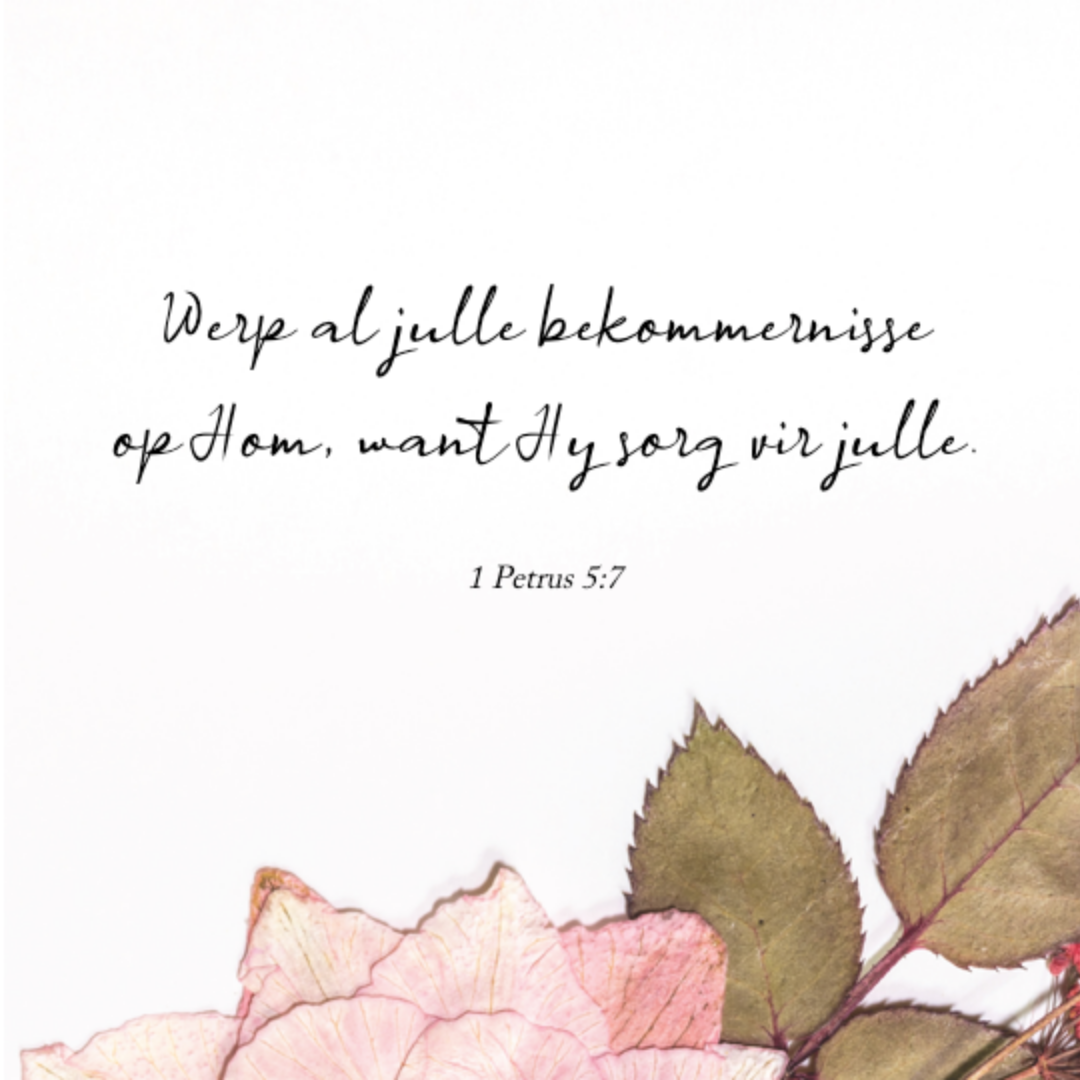 Werp al julle bekommernisse
op Hom, want Hy sorg vir julle.
1 Petrus 5:7